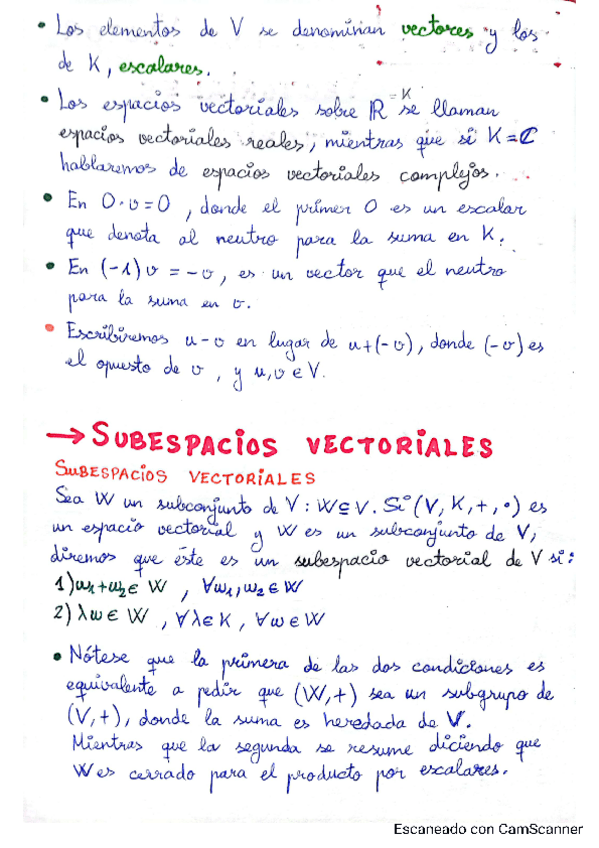 • Los elementos de V se denominan vectores y los
de K, escalares.
• Los espacios vectoriales sobre ℝ =K se llaman
espacios vectoriales reales, mientras que si K=ℂ
hablaremos de espacios vectoriales complejos.
• En 0·v=0, donde el primer 0 es un escalar
que denota al neutro para la suma en K.
• En (-1)v = -v, es un vector que el neutro
para la suma en v.
• Escribiremos u-v en lugar de u+(-v), donde (-v) es
el opuesto de v, y u,v∈V.
→ SUBESPACIOS VECTORIALES
SUBESPACIOS VECTORIALES
Sea W un subconjunto de V: W⊆V. Si (V,K,+,·) es
un espacio vectorial y W es un subconjunto de V,
diremos que éste es un subespacio vectorial de V si:
1) w1+w2∈ W, ∀w1,w2∈W
2) λw∈W, ∀λ∈K, ∀w∈W
• Nótese que la primera de las dos condiciones es
equivalente a pedir que (W,+) sea un subgrupo de
(V,+), donde la suma es heredada de V.
Mientras que la segunda se resume diciendo que
W es cerrado para el producto por escalares.
Escaneado con CamScanner